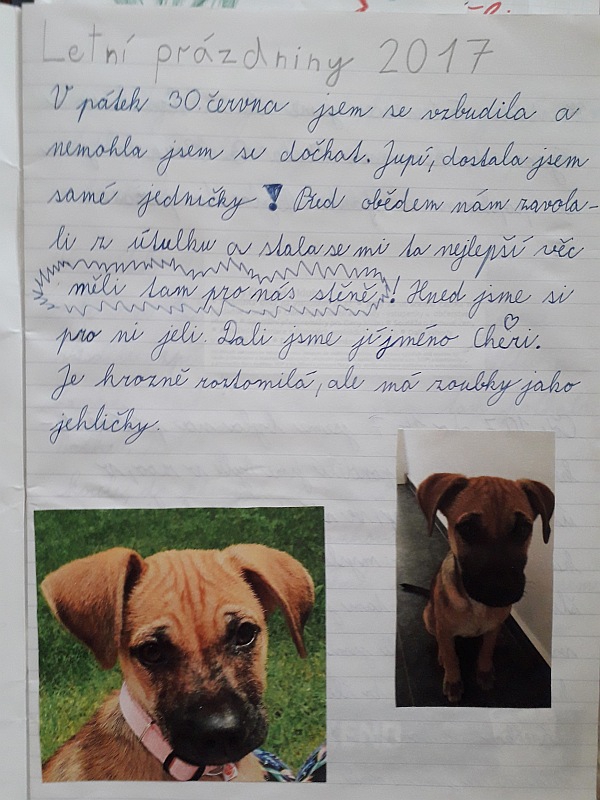 Letní prázdniny 2017
V pátek 30. června jsem se vzbudila a
nemohla jsem se dočkat. Jupí, dostala jsem
samé jedničky! Před obědem nám zavola-
li z útulku a stala se mi ta nejlepší věc
měli tam pro nás štěně! Hned jsme si
pro ni jeli. Dali jsme jí jméno Cheri.
Je hrozně roztomilá, ale má zoubky jako
jehličky.